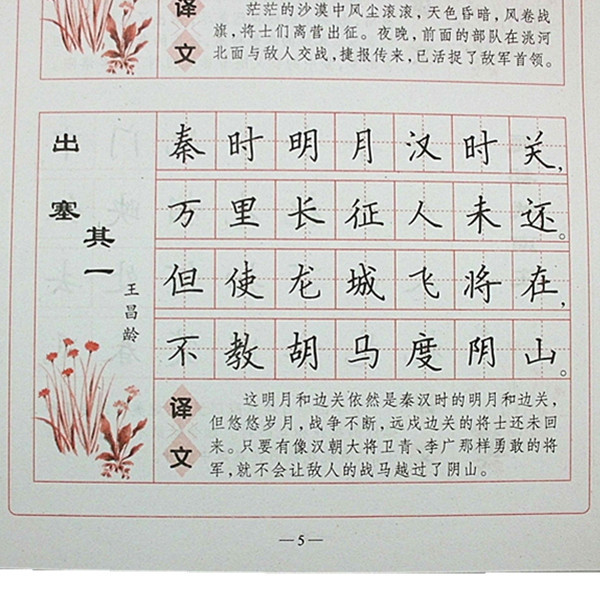 译文
茫茫的沙漠中风尘滚滚，天色昏暗，风卷战
旗，将士们离营出征。夜晚，前面的部队在洮河
北面与敌人交战，捷报传来，已活捉了敌军首领。
出塞
其一
王昌龄
秦时明月汉时关，
万里长征人未还。
但使龙城飞将在，
不教胡马度阴山。
译文
这明月和边关依然是秦汉时的明月和边关，
但悠悠岁月，战争不断，远戍边关的将士还未回
来。只要有像汉朝大将卫青、李广那样勇敢的将
军，就不会让敌人的战马越过了阴山。
—5—